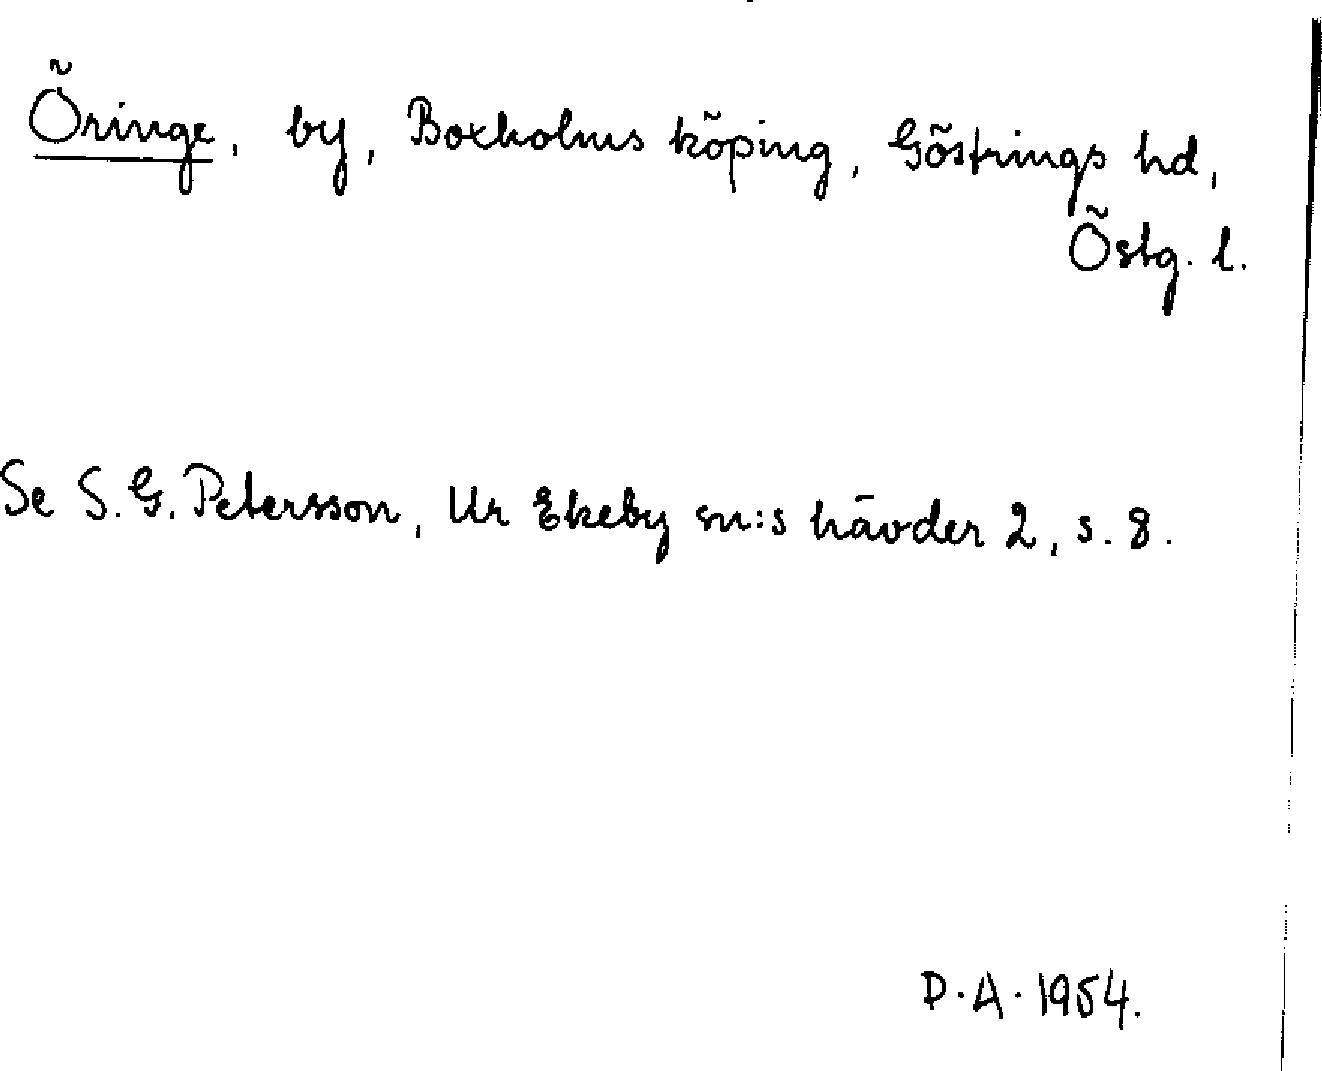 Öringe, by, Boxholms köping, Göstrings hd,
Östg. l.
Se S. G. Petersson, Ur Ekeby sn:s hävder 2, s. 8.
D. A. 1954.